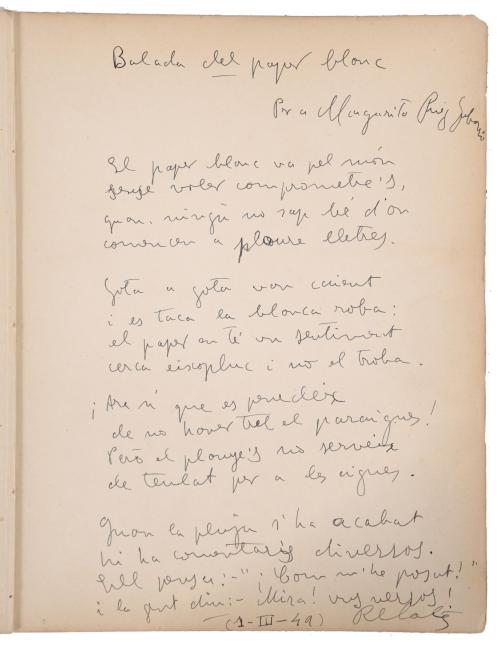 Balada del paper blanc
Per a Margarita Puig
El paper blanc va pel món
sense voler comprometre's,
quan ningú no sap bé d'on
comencen a ploure lletres.
Gota a gota van caient
i es taca la blanca roba:
el paper en té un sentiment
cerca aixopluc i no el troba.
¡Ara sí que es penedeix
de no haver tret el paraigues!
Però el plànye's no serveix
de teulat per a les aigues.
Quan la pluja s'ha acabat
hi ha comentaris diversos.
Ell pensa: -"¡Com m'he posat!"
i la gent diu: - Mira! uns versos!
(1-III-49)